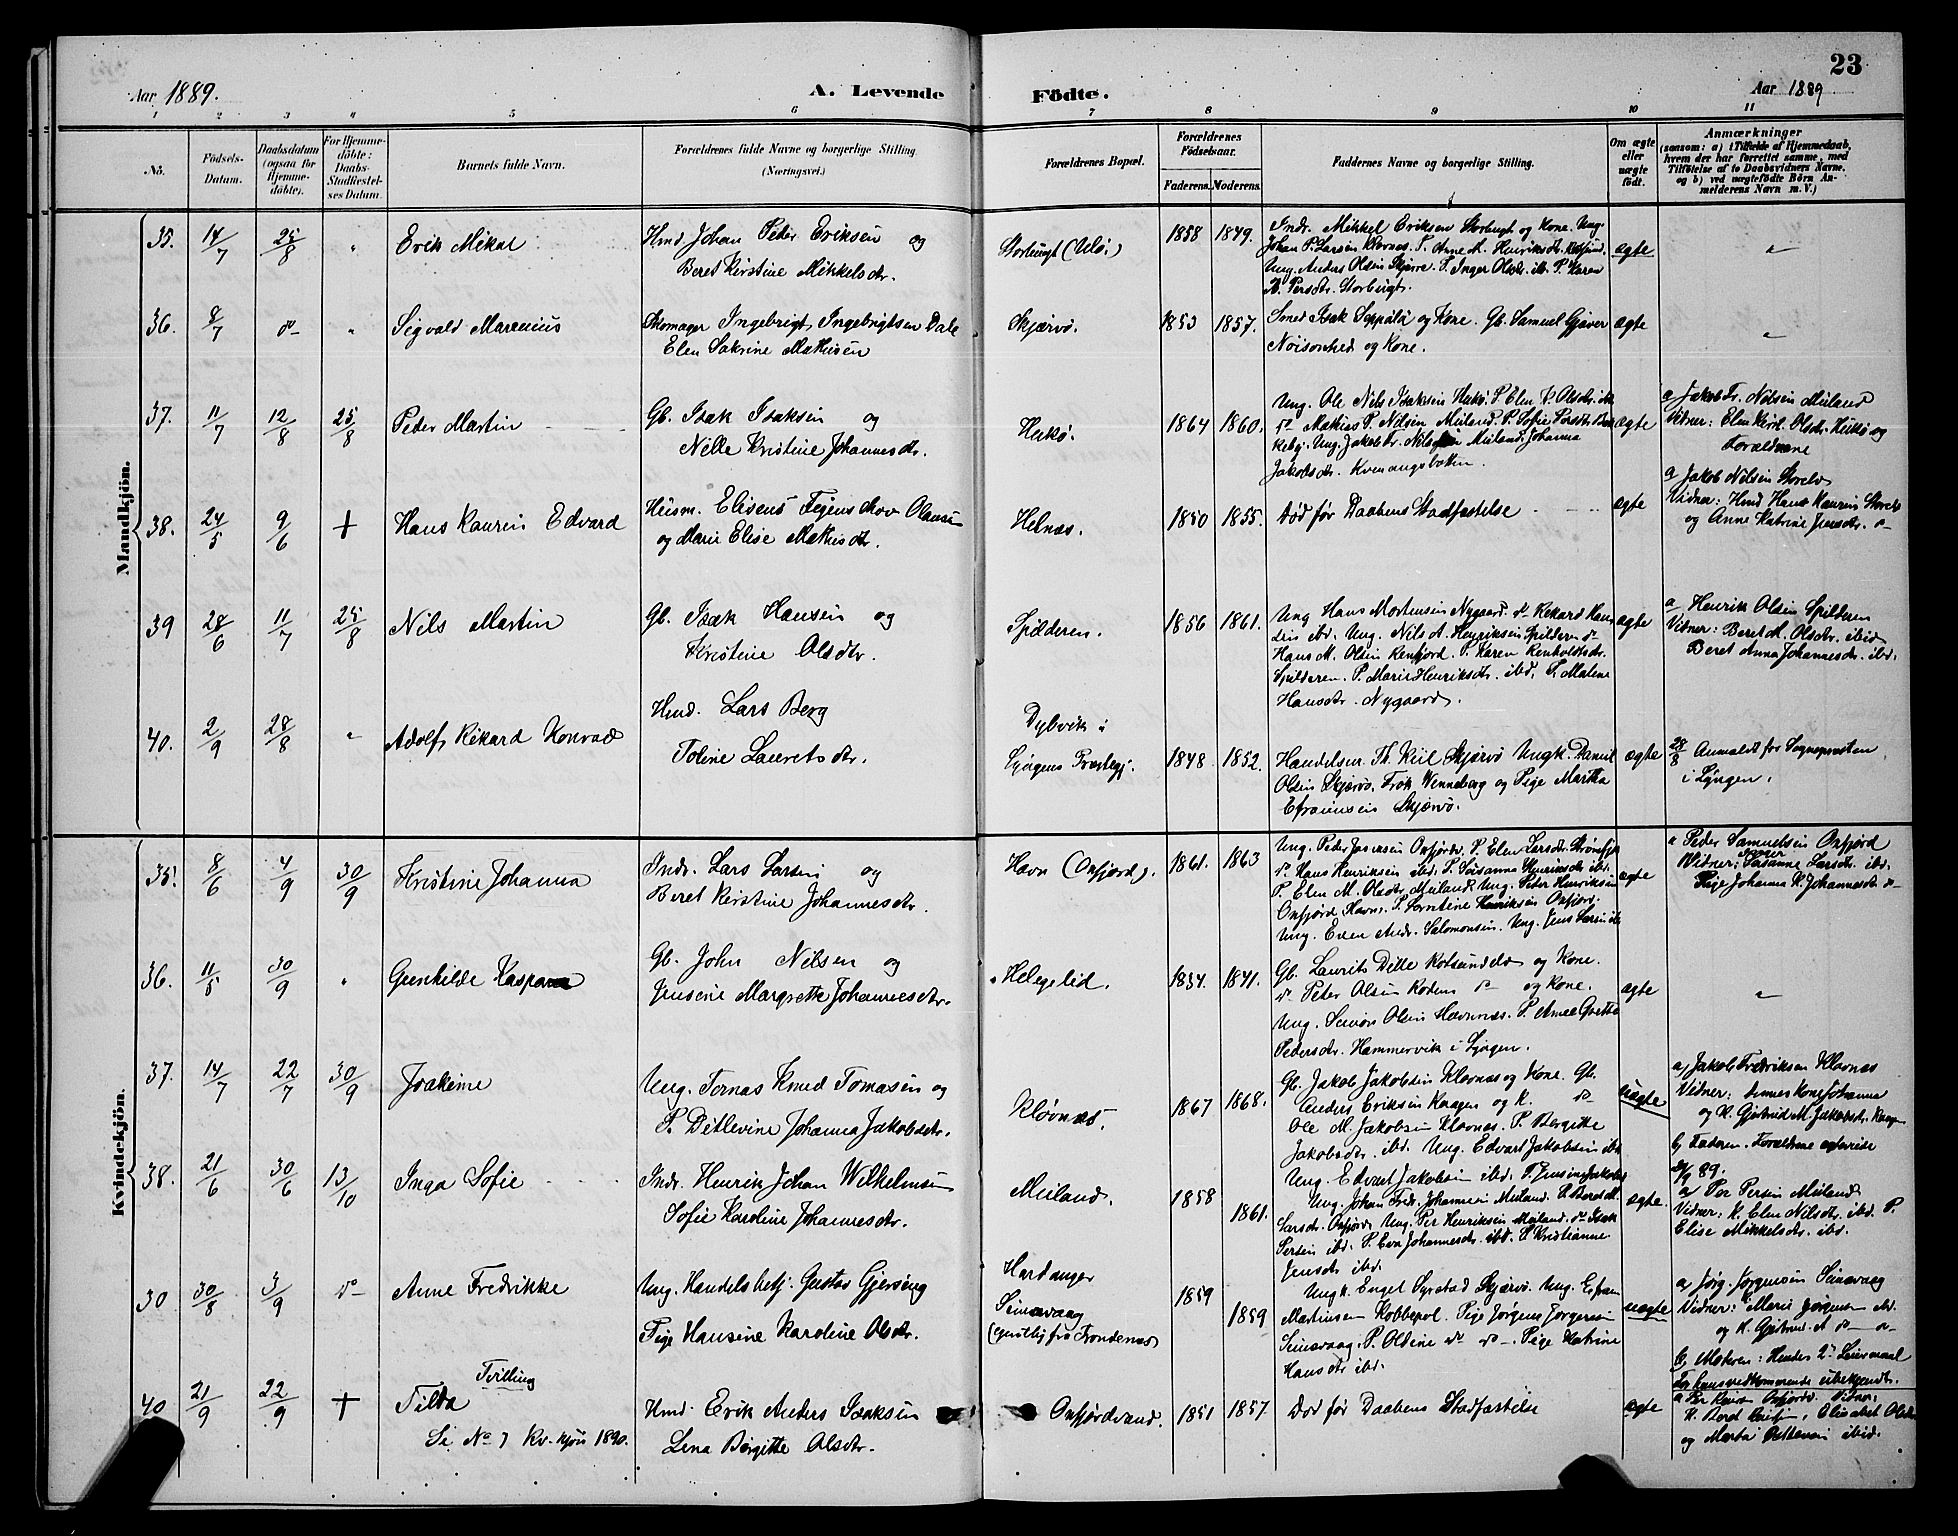 23
Aar 1889.
A. Levende
Födte.
Aar 1889
1 2 3 4 5 6 7 8 9 10 11
No.
Födsels-
Datum.
Daabsdatum
(ogsaa for
Hjemme-
döbte).
For Hjemme-
döbte:
Daabs-
Stadfæstel-
ses Datum.
Barnets fulde Navn.
Forældrenes fulde Navne og borgerlige Stilling
(Næringsvei.)
Forældrenes Bopæl.
Forældrenes
Födselsaar.
Faderens. Moderens.
Faddernes Navne og borgerlige Stilling.
Om ægte
eller
uægte
født.
Anmærkninger
(saasom: a) i Tilfælde af Hjemmedaab,
hvem der har forrettet samme, med
Tilföielse af to Daabsvidners Navne,
og b) ved uægtefödte Börn An-
melderens Navn m. V.)
Mandkjön.
35. 14/7 25/8 " Erik Mikal
Hmd. Johan Peter Eriksen og
Beret Kirstine Mikkelsdtr.
Storbugt (Ulö.)
1858 1849.
Indr. Mikkel Eriksen Storbugt og Kone. Ung.
Johan P. Larsen Klovnes. P. Anne M. Henriksdtr.
Ung. Anders Olsen Skjerve. P. Inger Olsdtr. ib. P. Karen
Persdtr. Storbugt.
ægte "
36. 8/7 do " Sigvald Marenius
Skomager Ingebrigt Ingebrigtsen Dale
Elen Sakrine Mathisen
Skjærvö. 1853 1857.
Smed Isak Seppälä og Kone. Gb. Samuel Gjæver
og Kone.
ægte "
37. 11/7 12/8 25/8 Peter Martin
Gb. Isak Isaksen og
Nelle Kristine Johannesdtr.
Hukö. 1864 1860.
Ung. Ole Nils Isaksen Hukö. P. Elen K. Olsdtr. ib.
do Mathias P. Nilsen Meiland. P. Sofie Persdtr.
Ung. Jakob Fr. Nilsen Meiland. Johanna
Jakobsdtr. Kvenangsbotten.
ægte
a Jakob Fr. Nilsen Meiland
Vidner: Elen Kirst. Olsdtr. Hukö og
Forældrene
38. 24/5 9/6 + Hans Kaurin Edvard
Husm. Eliseus Figenskov Olausen
og Marie Elise Mathisdtr.
Helnæs. 1850 1855.
Död för Daabens Stadfæstelse
ægte
a Jakob Nilsen Storelv
Vidner: Hmd Hans Kaurin Storelv
og Anne Katrine Jensdtr. do
39 28/6 11/7 25/8 Nils Martin
Gb. Isak Hansen og
Kristine Olsdtr.
Spilderen. 1856 1861.
Ung Hans Mortensen Nygaard. do Rikard Han-
sen ibd. Ung. Nils A. Henriksen Spilderen do
Hans M. Olsen Renfjord. P. Karen Renholdtsdtr.
Spilderen. P. Marie Henriksdtr. ibd. P. Malene
Hansdtr. Nygaard.
ægte
a Henrik Olsen Spilderen
Vidner: Beret M. Olsdtr. ibid
Beret Anna Johannesdtr. ibd.
40. 2/9 28/8 " Adolf Rikard Konrad
Hmd. Lars Berg
Toline Lauretsdtr.
Dybvik i
Lyngens Præstegj. 1848 1852.
Handelsm. Th. Kiil Skjærvö Ungk. Daniel
Olsen Skjærvö. Frök Wenneberg og Pige Martha
Efraimsen Skjærvö.
ægte
28/8 Anmeldt for Sognepræsten
i Lyngen.
Kvindekjön.
35. 8/6 4/9 30/9 Kristine Johanna
Indr. Lars Larsen og
Beret Kirstine Johannesdtr.
Havn (Oxfjord). 1861. 1863
Ung. Peder Oxfjord. P. Elen Larsdtr.
do Hans Henriksen ibid. P. Susanna Henriksdtr. ibd.
P. Elen M. Olsdtr. Meiland. Ung. Peter Henriksen
Oxfjord Havn. P. Berntine Henriksen Oxfjord.
Ung. Even Andr. Salomonsen. Ung. Jens Larsen ib.
ægte
a Peder Samuelsen Oxfjord
Vidner: Susanne Larsdtr. ibd.
Pige Johanna K. Johannesdtr. do
36. 11/5 30/9 " Gunhilde Kaspara
Gb. John Nilsen og
Jensine Margrethe Johannesdtr.
Helgelid. 1834. 1841.
Gb. Laurits Dille Rotsundelv og Kone.
do Peter Olsen Koden do og Kone.
Ung. Simon Olsen Havnnæs. P. Anne Grethe
Pedersdtr. Hammervik i Lyngen.
ægte "
37. 14/7 22/7 30/9 Joakime
Ung. Tomas Knud Tomasen og
P. Ditlevine Johanna Jakobsdtr.
Klovnæs. 1867 1868.
Gb. Jakob Jakobsen Klovnæs og Kone. Gb.
Anders Eriksen Kaagen og K. do
Ole M. Jakobsen Klovnæs. P. Bergitte
Jakobsdtr. ibd. Ung. Edvart Jakobsen ibd.
uægte
a, Jakob Fredriksen Klovnæs
Vidner: dennes Kone Johanna
og K. Gjertrud M. Jakobsdtr. Kaagen
b, Faderen. Forældrene
89.
38. 21/6 30/6 13/10 Inga Sofie
Indr. Henrik Johan Wilhelmsen
Sofie Karoline Johannesdtr.
Meiland. 1858 1861.
Ung. Edvart Jakobsen ibd. P. Jensine Jakobsdtr.
Ung. Johan Fredr. Johannesen Meiland. P. Beret M.
Larsdtr. Oxfjord. Ung. Per Henriksen Meiland. do Isak
Persen ibd. P. Eva Johannesdtr. ibd. P. Kristianne
Jensdtr. ibid.
ægte.
a, Per Persen Meiland
Vidner: K. Elen Nilsdtr. ibd. P.
Elise Mikkelsdtr. ibd.
30 30/8 3/9 do Anne Fredrikke
Ung. Handelsbetj. Gustav Gjersing
Pige Hansine Karoline Olsdtr.
Hardanger
Seinavaag
(egentlig fra Trondenæs)
1859 1859
Ungk. Engel Skjærvö. Ung. Efram
Martinsen Kobbepol. Pige Jørgine Jørgensen
Seinavaag. P. Oldine do do. Pige Katrine
Hansdtr ibid.
uægte
a, Jørg. Jørgensen Seinavaag
Vidner: Marie Jørgensen ibd.
og K. Gjertrud A do do
b, Moderen: Hendes 2det Leiermaal
for hans vedkommende ubekjendt.
40 21/9 22/9 + Tvilling
Tilda
Se No 7 Kv.-kjön 1890.
Hmd. Erik Anders Isaksen
Lena Bergitte Olsdtr.
Oxfjordvand. 1851 1857
Död för Daabens Stadfæstelse
ægte
a Per Oxfjordv. Vidner:
K. Beret, Elisabet Olsdtr.
og Marta ibid.